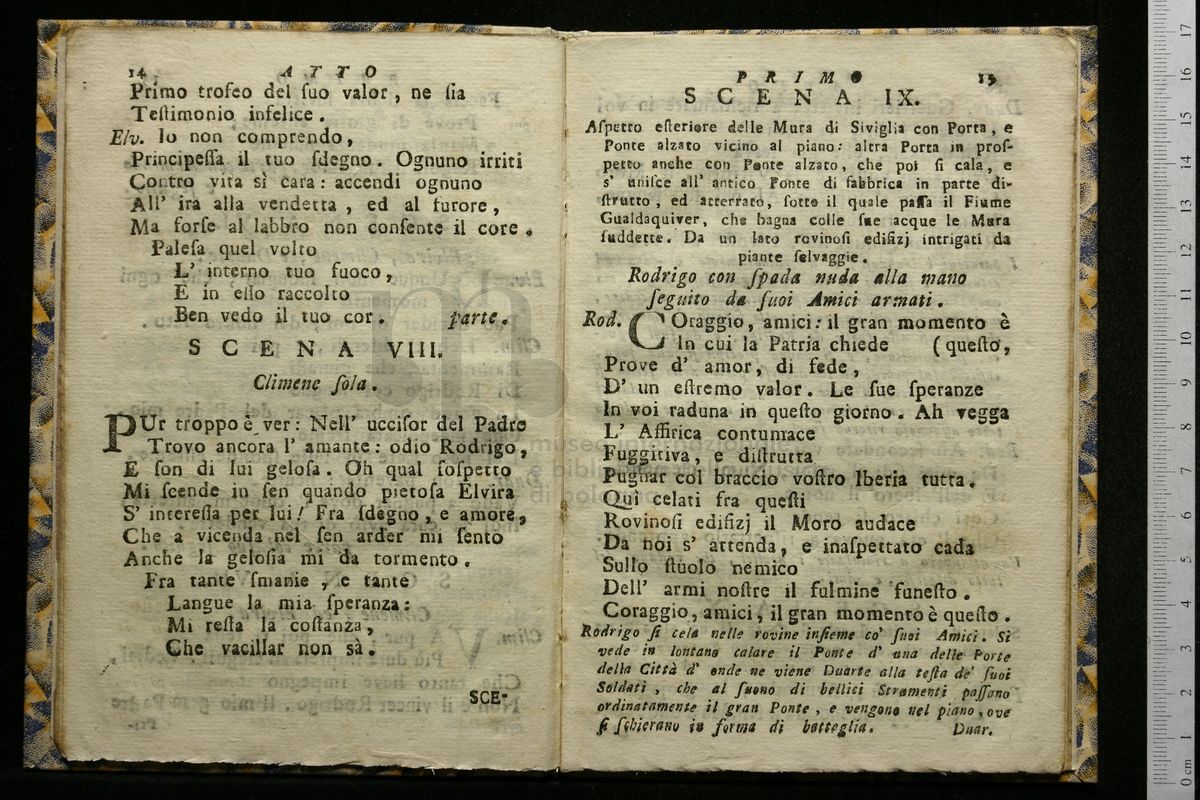 14 ATTO
Primo trofeo del ſuo valor, ne ſia
Teſtimonio infelice.
Elv. Io non comprendo,
Principeſſa il tuo ſdegno. Ognuno irriti
Contro vita sì cara: accendi ognuno
All' ira alla vendetta, ed al furore,
Ma forſe al labbro non conſente il core.
Paleſa quel volto
L' interno tuo fuoco,
E in eſſo raccolto
Ben vedo il tuo cor. parte.
SCENA VIII.
Climene ſola.
PUr troppo è ver: Nell' ucciſor del Padre
Trovo ancora l' amante: odio Rodrigo,
E ſon di lui geloſa. Oh qual ſoſpetto
Mi ſcende in ſen quando pietoſa Elvira
S' intereſſa per lui! Fra ſdegno, e amore,
Che a vicenda nel ſen arder mi ſento
Anche la geloſia mi da tormento.
Fra tante ſmanie, e tante
Langue la mia ſperanza:
Mi reſta la coſtanza,
Che vacillar non sà.
SCE-
PRIMO 15
SCENA IX.
Aſpetto eſteriore delle Mura di Siviglia con Porta, e
Ponte alzato vicino al piano: altra Porta in proſ-
petto anche con Ponte alzato, che poi ſi cala, e
s' uniſce all' antico Ponte di fabbrica in parte di-
ſtrutto, ed atterrato, ſotto il quale paſſa il Fiume
Gualdaquiver, che bagna colle ſue acque le Mura
ſuddette. Da un lato rovinoſi edifizj intrigati da
piante ſelvaggie.
Rodrigo con ſpada nuda alla mano
ſeguito da ſuoi Amici armati.
Rod. COraggio, amici: il gran momento è
In cui la Patria chiede (queſto,
Prove d' amor, di fede,
D' un eſtremo valor. Le ſue ſperanze
In voi raduna in queſto giorno. Ah vegga
L' Affirica contumace
Fuggitiva, e diſtrutta
Pugnar col braccio voſtro Iberia tutta.
Quì celati fra queſti
Rovinoſi edifizj il Moro audace
Da noi s' attenda, e inaſpettato cada
Sullo ſtuolo nemico
Dell' armi noſtre il fulmine funeſto.
Coraggio, amici, il gran momento è queſto.
Rodrigo ſi cela nelle rovine inſieme co' ſuoi Amici. Si
vede in lontano calare il Ponte d' una delle Porte
della Città d' onde ne viene Duarte alla teſta de' ſuoi
Soldati, che al ſuono di bellici Stromenti paſſano
ordinatamente il gran Ponte, e vengono nel piano, ove
ſi ſchierano in forma di battaglia. Duar.